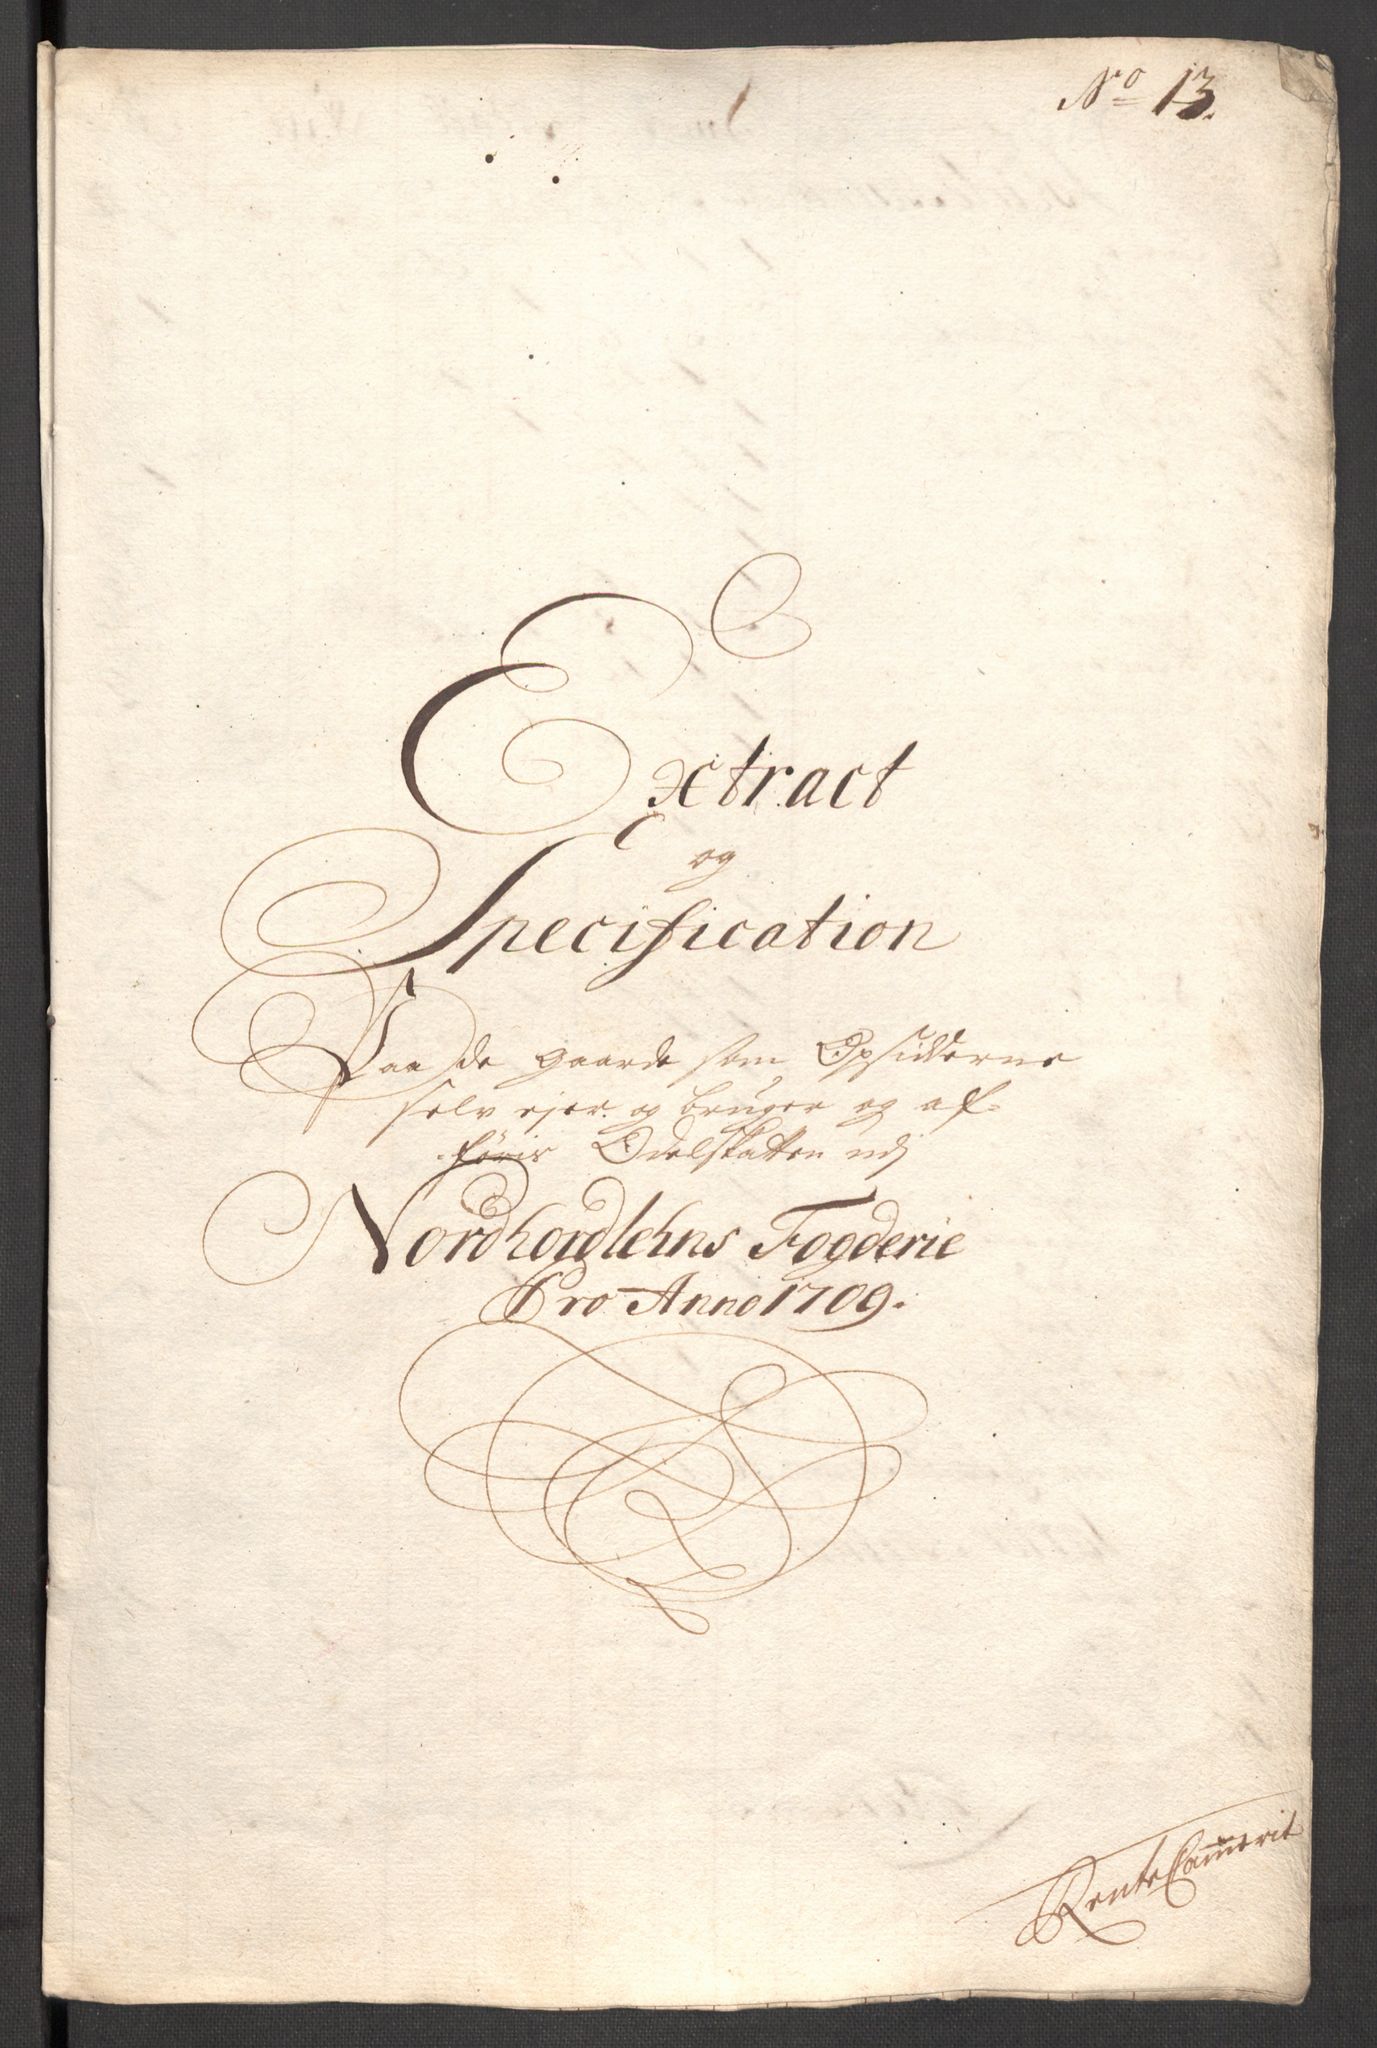 No 13.
Extract
og
Specification
Paa de gaarde som Opsidderne
selv ejer og bruger og af-
føris Odelskatten udj
Nordhordlehns Fogderie
Pro Anno 1709.
RenteCammerit